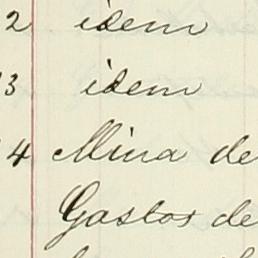 2 idem
3 idem
4 Mina de
Gastos de